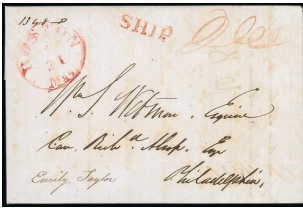 BOSTON
21
MAY
SHIP
Wm. S. Wetmore Esquire
Care Rich.d Alsop Esq
Philadelphia.
Emily Taylor